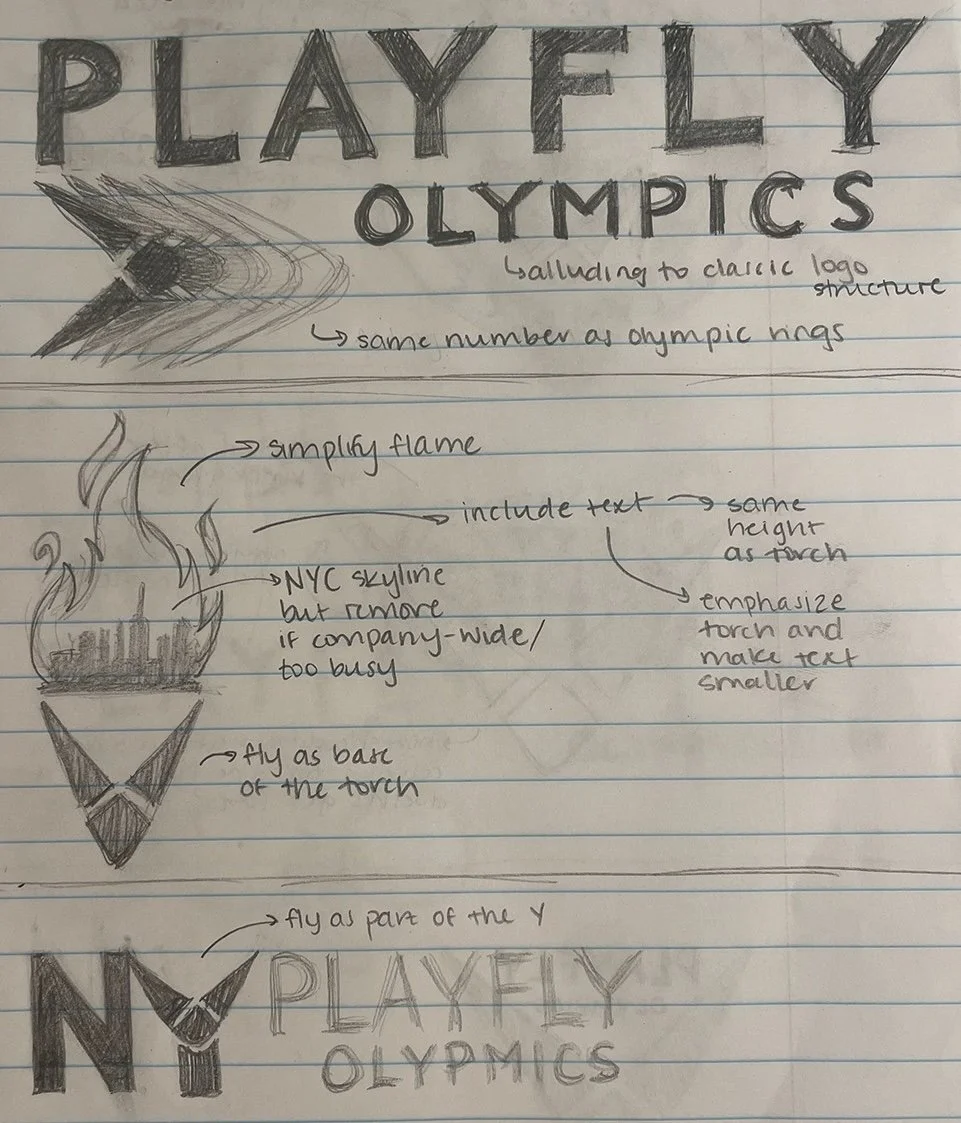 PLAYFLY
OLYMPICS
alluding to classic logo
structure
same number as olympic rings
simplify flame
include text
same
height
as torch
NYC skyline
but remove
if company-wide/
too busy
emphasize
torch and
make text
smaller
fly as base
of the torch
fly as part of the Y
NY PLAYFLY
OLYPMICS